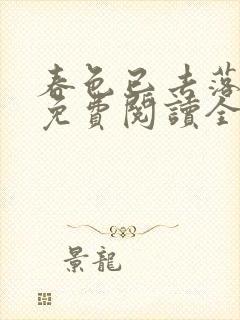 春色已去落
免費閱讀全
景龍